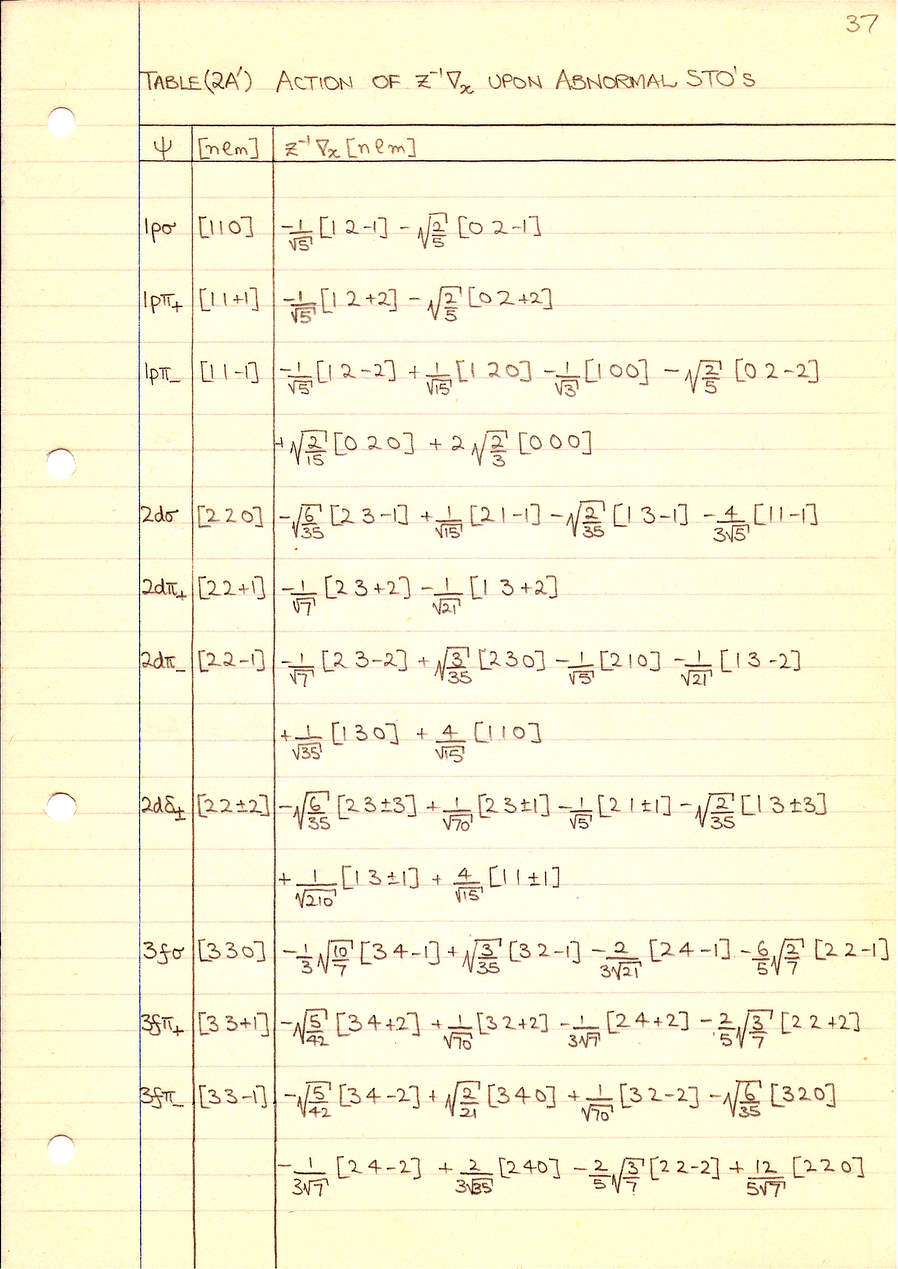 37
TABLE(2A') ACTION OF Z⁻¹∇ₓ UPON ABNORMAL STO'S
ψ [nℓm] Z⁻¹∇ₓ[nℓm]
1pσ [110] -1/√5 [1 2 -1] - √(2/5) [0 2 -1]
1pπ₊ [11+1] -1/√5 [1 2 +2] - √(2/5) [0 2 +2]
1pπ₋ [11-1] -1/√5 [1 2 -2] + 1/√15 [1 2 0] - 1/√3 [1 0 0] - √(2/5) [0 2 -2]
+ √(2/15) [0 2 0] + 2√(2/3) [0 0 0]
2dσ [220] -√(6/35) [2 3 -1] + 1/√15 [2 1 -1] - √(2/35) [1 3 -1] - 4/3√5 [1 1 -1]
2dπ₊ [22+1] -1/√7 [2 3 +2] - 1/√21 [1 3 +2]
2dπ₋ [22-1] -1/√7 [2 3 -2] + √(3/35) [2 3 0] - 1/√5 [2 1 0] - 1/√21 [1 3 -2]
+ 1/√35 [1 3 0] + 4/√15 [1 1 0]
2dδ± [22±2] -√(6/35) [2 3 ±3] + 1/√70 [2 3 ±1] - 1/√5 [2 1 ±1] - √(2/35) [1 3 ±3]
+ 1/√210 [1 3 ±1] + 4/√15 [1 1 ±1]
3fσ [330] -1/3 √(10/7) [3 4 -1] + √(3/35) [3 2 -1] - 2/3√21 [2 4 -1] - 6/5 √(2/7) [2 2 -1]
3fπ₊ [33+1] -√(5/42) [3 4 +2] + 1/√70 [3 2 +2] - 1/3√7 [2 4 +2] - 2/5 √(3/7) [2 2 +2]
3fπ₋ [33-1] -√(5/42) [3 4 -2] + √(2/21) [3 4 0] + 1/√70 [3 2 -2] - √(6/35) [3 2 0]
- 1/3√7 [2 4 -2] + 2/3√35 [2 4 0] - 2/5 √(3/7) [2 2 -2] + 12/5√7 [2 2 0]